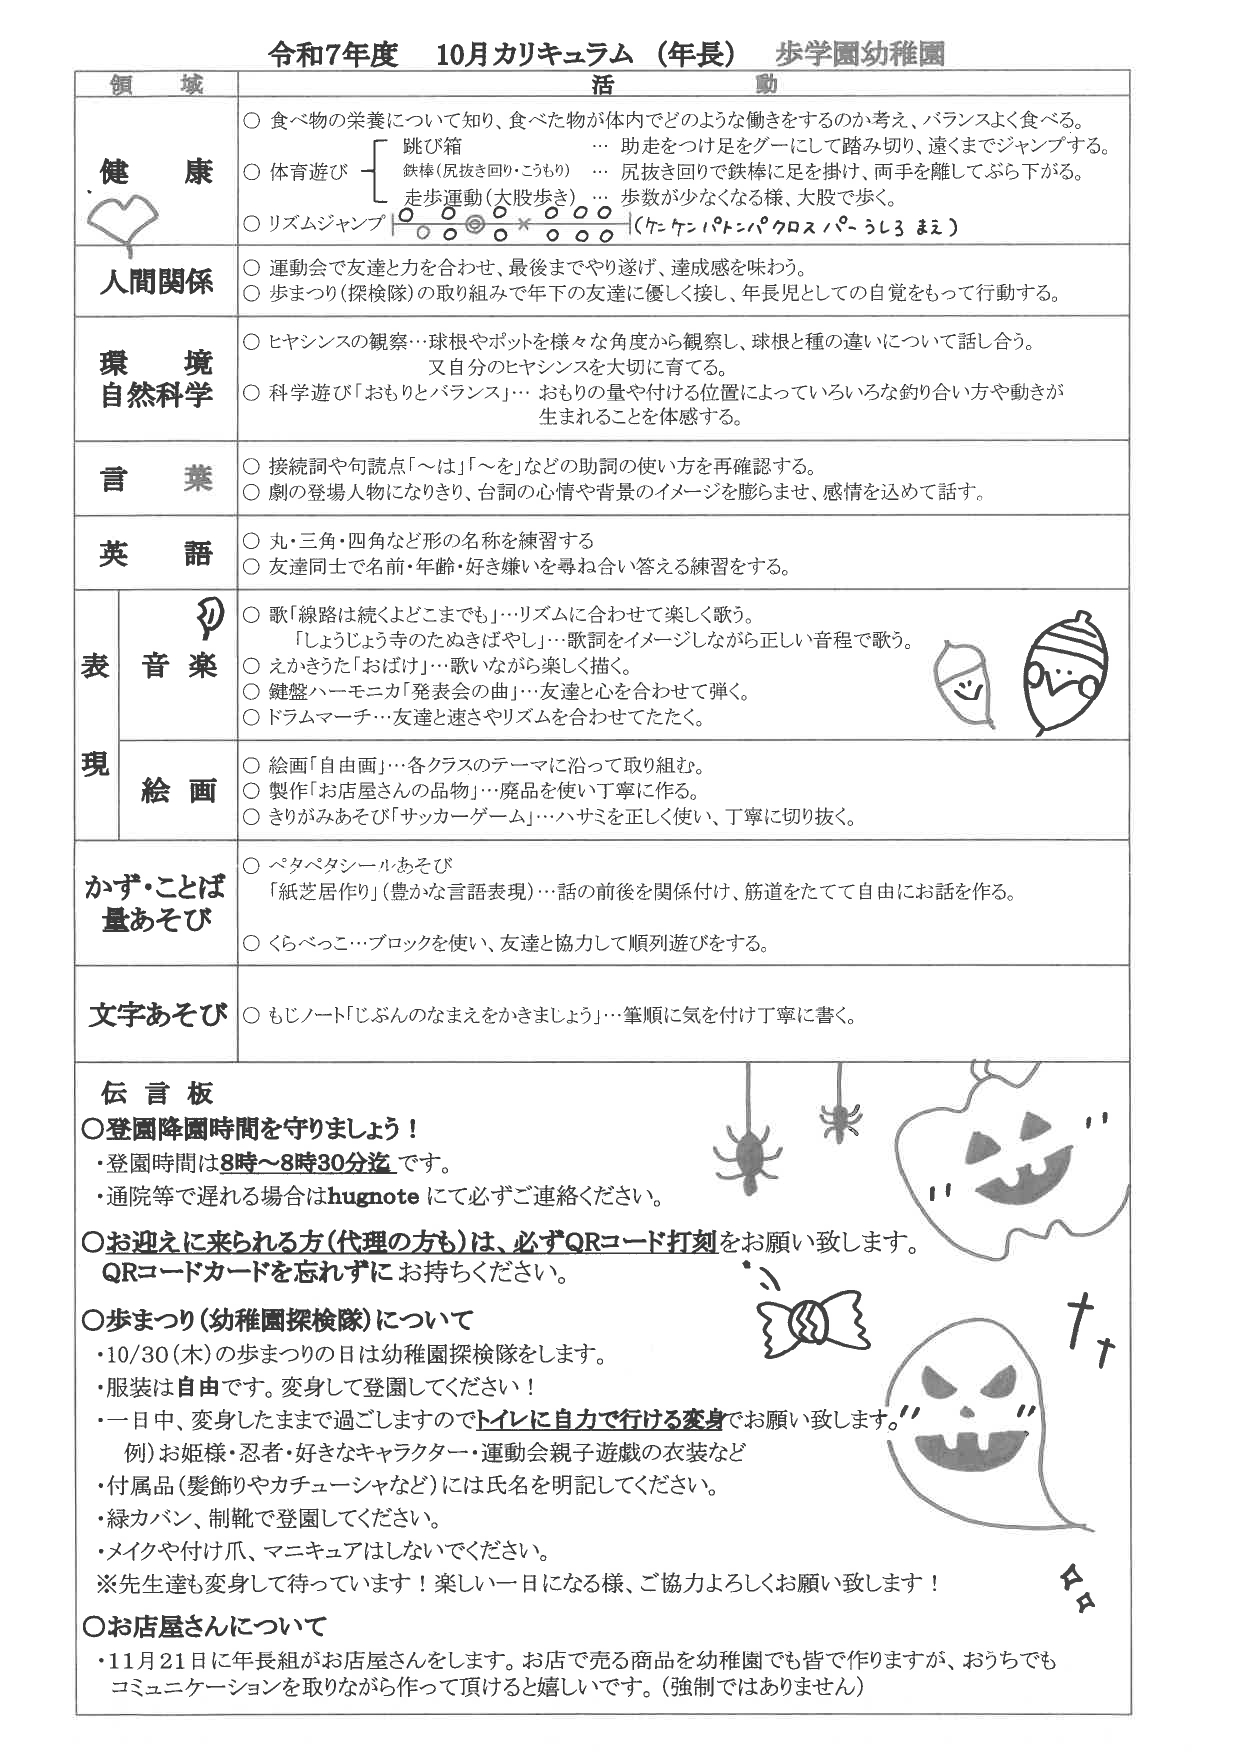 令和7年度　10月カリキュラム　（年長）　歩学園幼稚園
領　域　活　動
健　康
○ 食べ物の栄養について知り、食べた物が体内でどのような働きをするのか考え、バランスよく食べる。
○ 体育遊び
跳び箱　… 助走をつけ足をグーにして踏み切り、遠くまでジャンプする。
鉄棒（尻抜き回り・こうもり）　… 尻抜き回りで鉄棒に足を掛け、両手を離してぶら下がる。
走歩運動（大股歩き）　… 歩数が少なくなる様、大股で歩く。
○ リズムジャンプ （ケンケンパトンパクロスパーうしろ まえ）
人間関係
○ 運動会で友達と力を合わせ、最後までやり遂げ、達成感を味わう。
○ 歩まつり（探検隊）の取り組みで年下の友達に優しく接し、年長児としての自覚をもって行動する。
環　境
自然科学
○ ヒヤシンスの観察…球根やポットを様々な角度から観察し、球根と種の違いについて話し合う。
又自分のヒヤシンスを大切に育てる。
○ 科学遊び「おもりとバランス」… おもりの量や付ける位置によっていろいろな釣り合い方や動きが
生まれることを体感する。
言　葉
○ 接続詞や句読点「～は」「～を」などの助詞の使い方を再確認する。
○ 劇の登場人物になりきり、台詞の心情や背景のイメージを膨らませ、感情を込めて話す。
英　語
○ 丸・三角・四角など形の名称を練習する
○ 友達同士で名前・年齢・好き嫌いを尋ね合い答える練習をする。
表現
音 楽
○ 歌「線路は続くよどこまでも」…リズムに合わせて楽しく歌う。
「しょうじょう寺のたぬきばやし」…歌詞をイメージしながら正しい音程で歌う。
○ えかきうた「おばけ」…歌いながら楽しく描く。
○ 鍵盤ハーモニカ「発表会の曲」…友達と心を合わせて弾く。
○ ドラムマーチ…友達と速さやリズムを合わせてたたく。
絵 画
○ 絵画「自由画」…各クラスのテーマに沿って取り組む。
○ 製作「お店屋さんの品物」…廃品を使い丁寧に作る。
○ きりがみあそび「サッカーゲーム」…ハサミを正しく使い、丁寧に切り抜く。
かず・ことば
量あそび
○ ペタペタシールあそび
「紙芝居作り」（豊かな言語表現）…話の前後を関係付け、筋道をたてて自由にお話を作る。
○ くらべっこ…ブロックを使い、友達と協力して順列遊びをする。
文字あそび
○ もじノート「じぶんのなまえをかきましょう」…筆順に気を付け丁寧に書く。
伝 言 板
○登園降園時間を守りましょう！
・登園時間は8時～8時30分迄 です。
・通院等で遅れる場合はhugnote にて必ずご連絡ください。
○お迎えに来られる方（代理の方も）は、必ずQRコード打刻をお願い致します。
QRコードカードを忘れずに お持ちください。
○歩まつり（幼稚園探検隊）について
・10/30（木）の歩まつりの日は幼稚園探検隊をします。
・服装は自由です。変身して登園してください！
・一日中、変身したままで過ごしますのでトイレに自力で行ける変身でお願い致します。
例）お姫様・忍者・好きなキャラクター・運動会親子遊戯の衣装など
・付属品（髪飾りやカチューシャなど）には氏名を明記してください。
・緑カバン、制靴で登園してください。
・メイクや付け爪、マニキュアはしないでください。
※先生達も変身して待っています！楽しい一日になる様、ご協力よろしくお願い致します！
○お店屋さんについて
・11月21日に年長組がお店屋さんをします。お店で売る商品を幼稚園でも皆で作りますが、おうちでも
コミュニケーションを取りながら作って頂けると嬉しいです。（強制ではありません）